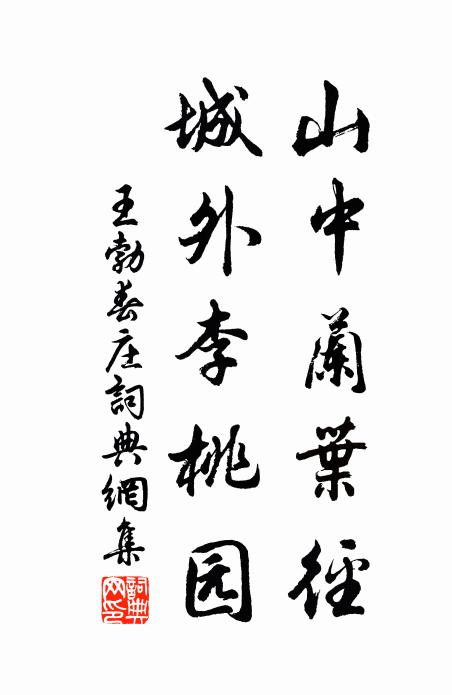 山中蘭葉徑
城外李桃园
王勃春庄詞典網集
詞典网印